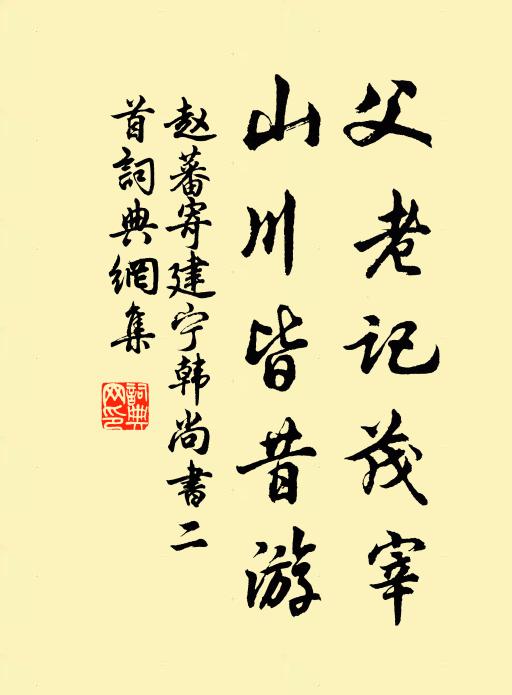 父老记茂宰
山川皆昔游
赵蕃寄建宁韩尚书二
首词典網集
詞典网印